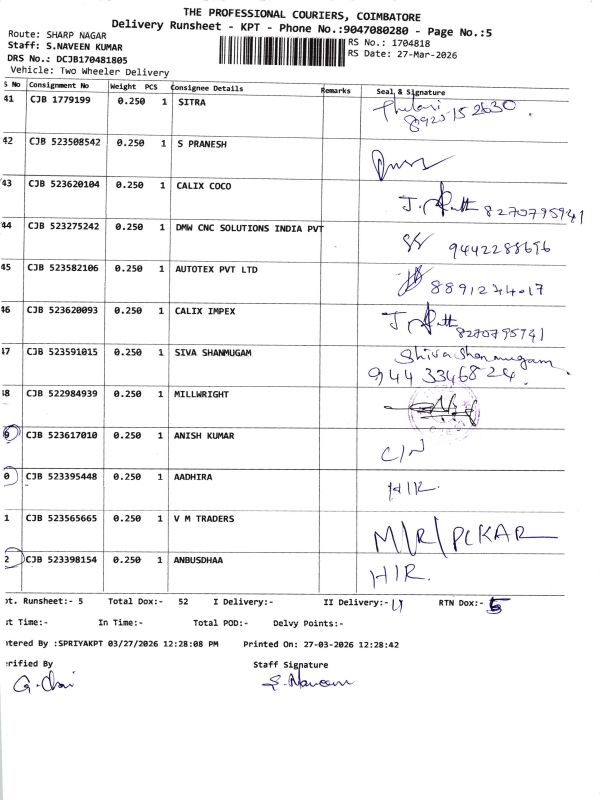 THE PROFESSIONAL COURIERS, COIMBATORE
Delivery Runsheet - KPT - Phone No.:9047080280 - Page No.:5
Route: SHARP NAGAR
Staff: S.NAVEEN KUMAR
DRS No.: DCJB170481805
Vehicle: Two Wheeler Delivery
RS No.: 1704818
RS Date: 27-Mar-2026
S No Consignment No Weight PCS Consignee Details Remarks Seal & Signature
41 CJB 1779199 0.250 1 SITRA
42 CJB 523508542 0.250 1 S PRANESH
43 CJB 523620104 0.250 1 CALIX COCO 8270795941
44 CJB 523275242 0.250 1 DMW CNC SOLUTIONS INDIA PVT 9442288696
45 CJB 523582106 0.250 1 AUTOTEX PVT LTD
46 CJB 523620093 0.250 1 CALIX IMPEX
47 CJB 523591015 0.250 1 SIVA SHANMUGAM Shiva Shanmugam
944 3346824
48 CJB 522984939 0.250 1 MILLWRIGHT
9 CJB 523617010 0.250 1 ANISH KUMAR C/N
0 CJB 523395448 0.250 1 AADHIRA H/R
1 CJB 523565665 0.250 1 V M TRADERS M/R/PCKAR
2 CJB 523398154 0.250 1 ANBUSDHAA H/R.
ot. Runsheet:- 5 Total Dox:- 52 I Delivery:- II Delivery:- 4 RTN Dox:- 5
ut Time:- In Time:- Total POD:- Delvy Points:-
ntered By :SPRIYAKPT 03/27/2026 12:28:08 PM Printed On: 27-03-2026 12:28:42
erified By Staff Signature
S. Naveen